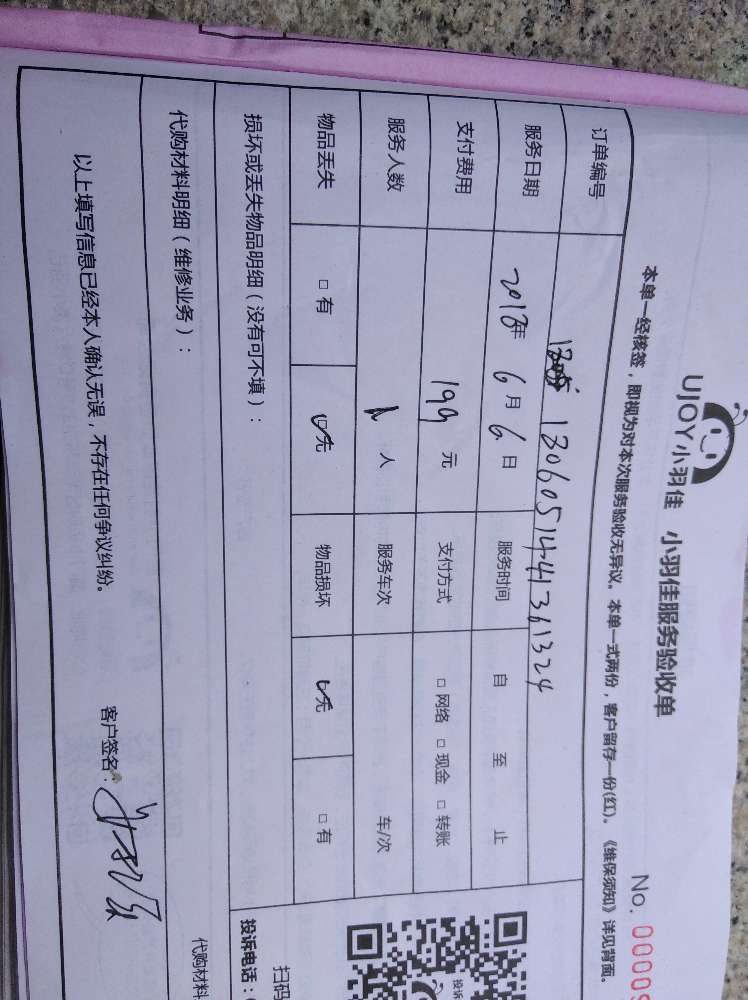 UJOY小羽佳 小羽佳服务验收单
No. 00009
本单一经核签，即视为对本次服务验收无异议。本单一式两份，客户留存一份(红)。《维保须知》详见背面。
订单编号 1306051441361324
服务日期 2018年 6月 6日 服务时间 自 至 止
支付费用 199 元 支付方式 □ 网络 □ 现金 □ 转账
服务人数 1 人 服务车次 车/次
物品丢失 □ 有 □ 无 物品损坏 □ 无 □ 有
损坏或丢失物品明细（没有可不填）：
扫码
投诉
投诉电话：
代购材料明细（维修业务）：
代购材料
以上填写信息已经本人确认无误，不存在任何争议纠纷。
客户签名：